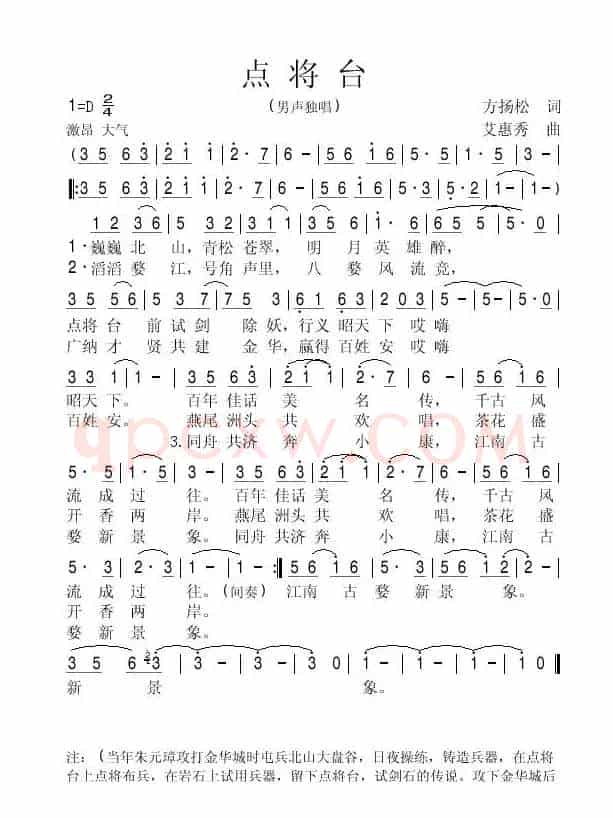 点将台
1=D 2/4
(男声独唱)
方扬松 词
激昂 大气
艾惠秀 曲
(3 5 | 6 3 | 1 2 1 | 2· 7 | 6 - | 5 6 | 1 6 | 3 5 6 3 | 2· 5 | 1 - |
‖: 3 5 | 6 3 | 1 2 1 | 2· 7 | 6 - | 5 6 1 6 | 3 5 | 2· 5 | 5· 2 | 1 - | 1 - )
1 2 3 6 | 5 3 5 | 2 3 2 1 | 3· 5 6 | 1· 6 | 6 5 5 | 5 - |
1·巍巍 北 山,青松 苍翠, 明 月 英 雄 醉,
2·滔滔 婺 江,号角 声里, 八 婺 风 流 竞,
3 5 5 6 | 5 3 7 7 | 5· 5 | 6 1 6 3 | 2 0 3 | 5 - | 5· 0 |
点将 台 前 试 剑 除 妖,行义 昭天 下 哎嗨
广纳 才 贤 共 建 金 华,赢得 百姓 安 哎嗨
3 3 1 | 1 - | 3 3 5 6 3 | 2 1 1 | 1 - | 5 6 1 6 |
昭天 下。 百年 佳话 美 名 传, 千古 风
百姓 安。 燕尾 洲头 共 欢 唱, 茶花 盛
3.同舟 共济 奔 小 康,江南 古
5· 5 | 1· 5 | 3 - | 3 5 6 3 | 2 1 1 | 1 - | 5 6 1 6 |
流 成 过 往。 百年 佳话 美 名 传, 千古 风
开 香 两 岸。 燕尾 洲头 共 欢 唱, 茶花 盛
婺 新 景 象。 同舟 共济 奔 小 康, 江南 古
5· 3 | 2· 3 | 1 - | 1 - :‖ 5 6 1 6 | 5· 3 | 5 6 1 2 | 2 - |
流 成 过 往。(间奏) 江南 古 婺 新 景 象。
开 香 两 岸。
婺 新 景 象。
3 5 6 3 | 3 - | 3 - | 3 - | 1 - | 1 - | 1 - | 1 0 ‖
新 景 象。
qpcxw.COM
注:(当年朱元璋攻打金华城时屯兵北山大盘谷,日夜操练,铸造兵器,在点将
台上点将布兵,在岩石上试用兵器,留下点将台,试剑石的传说。攻下金华城后